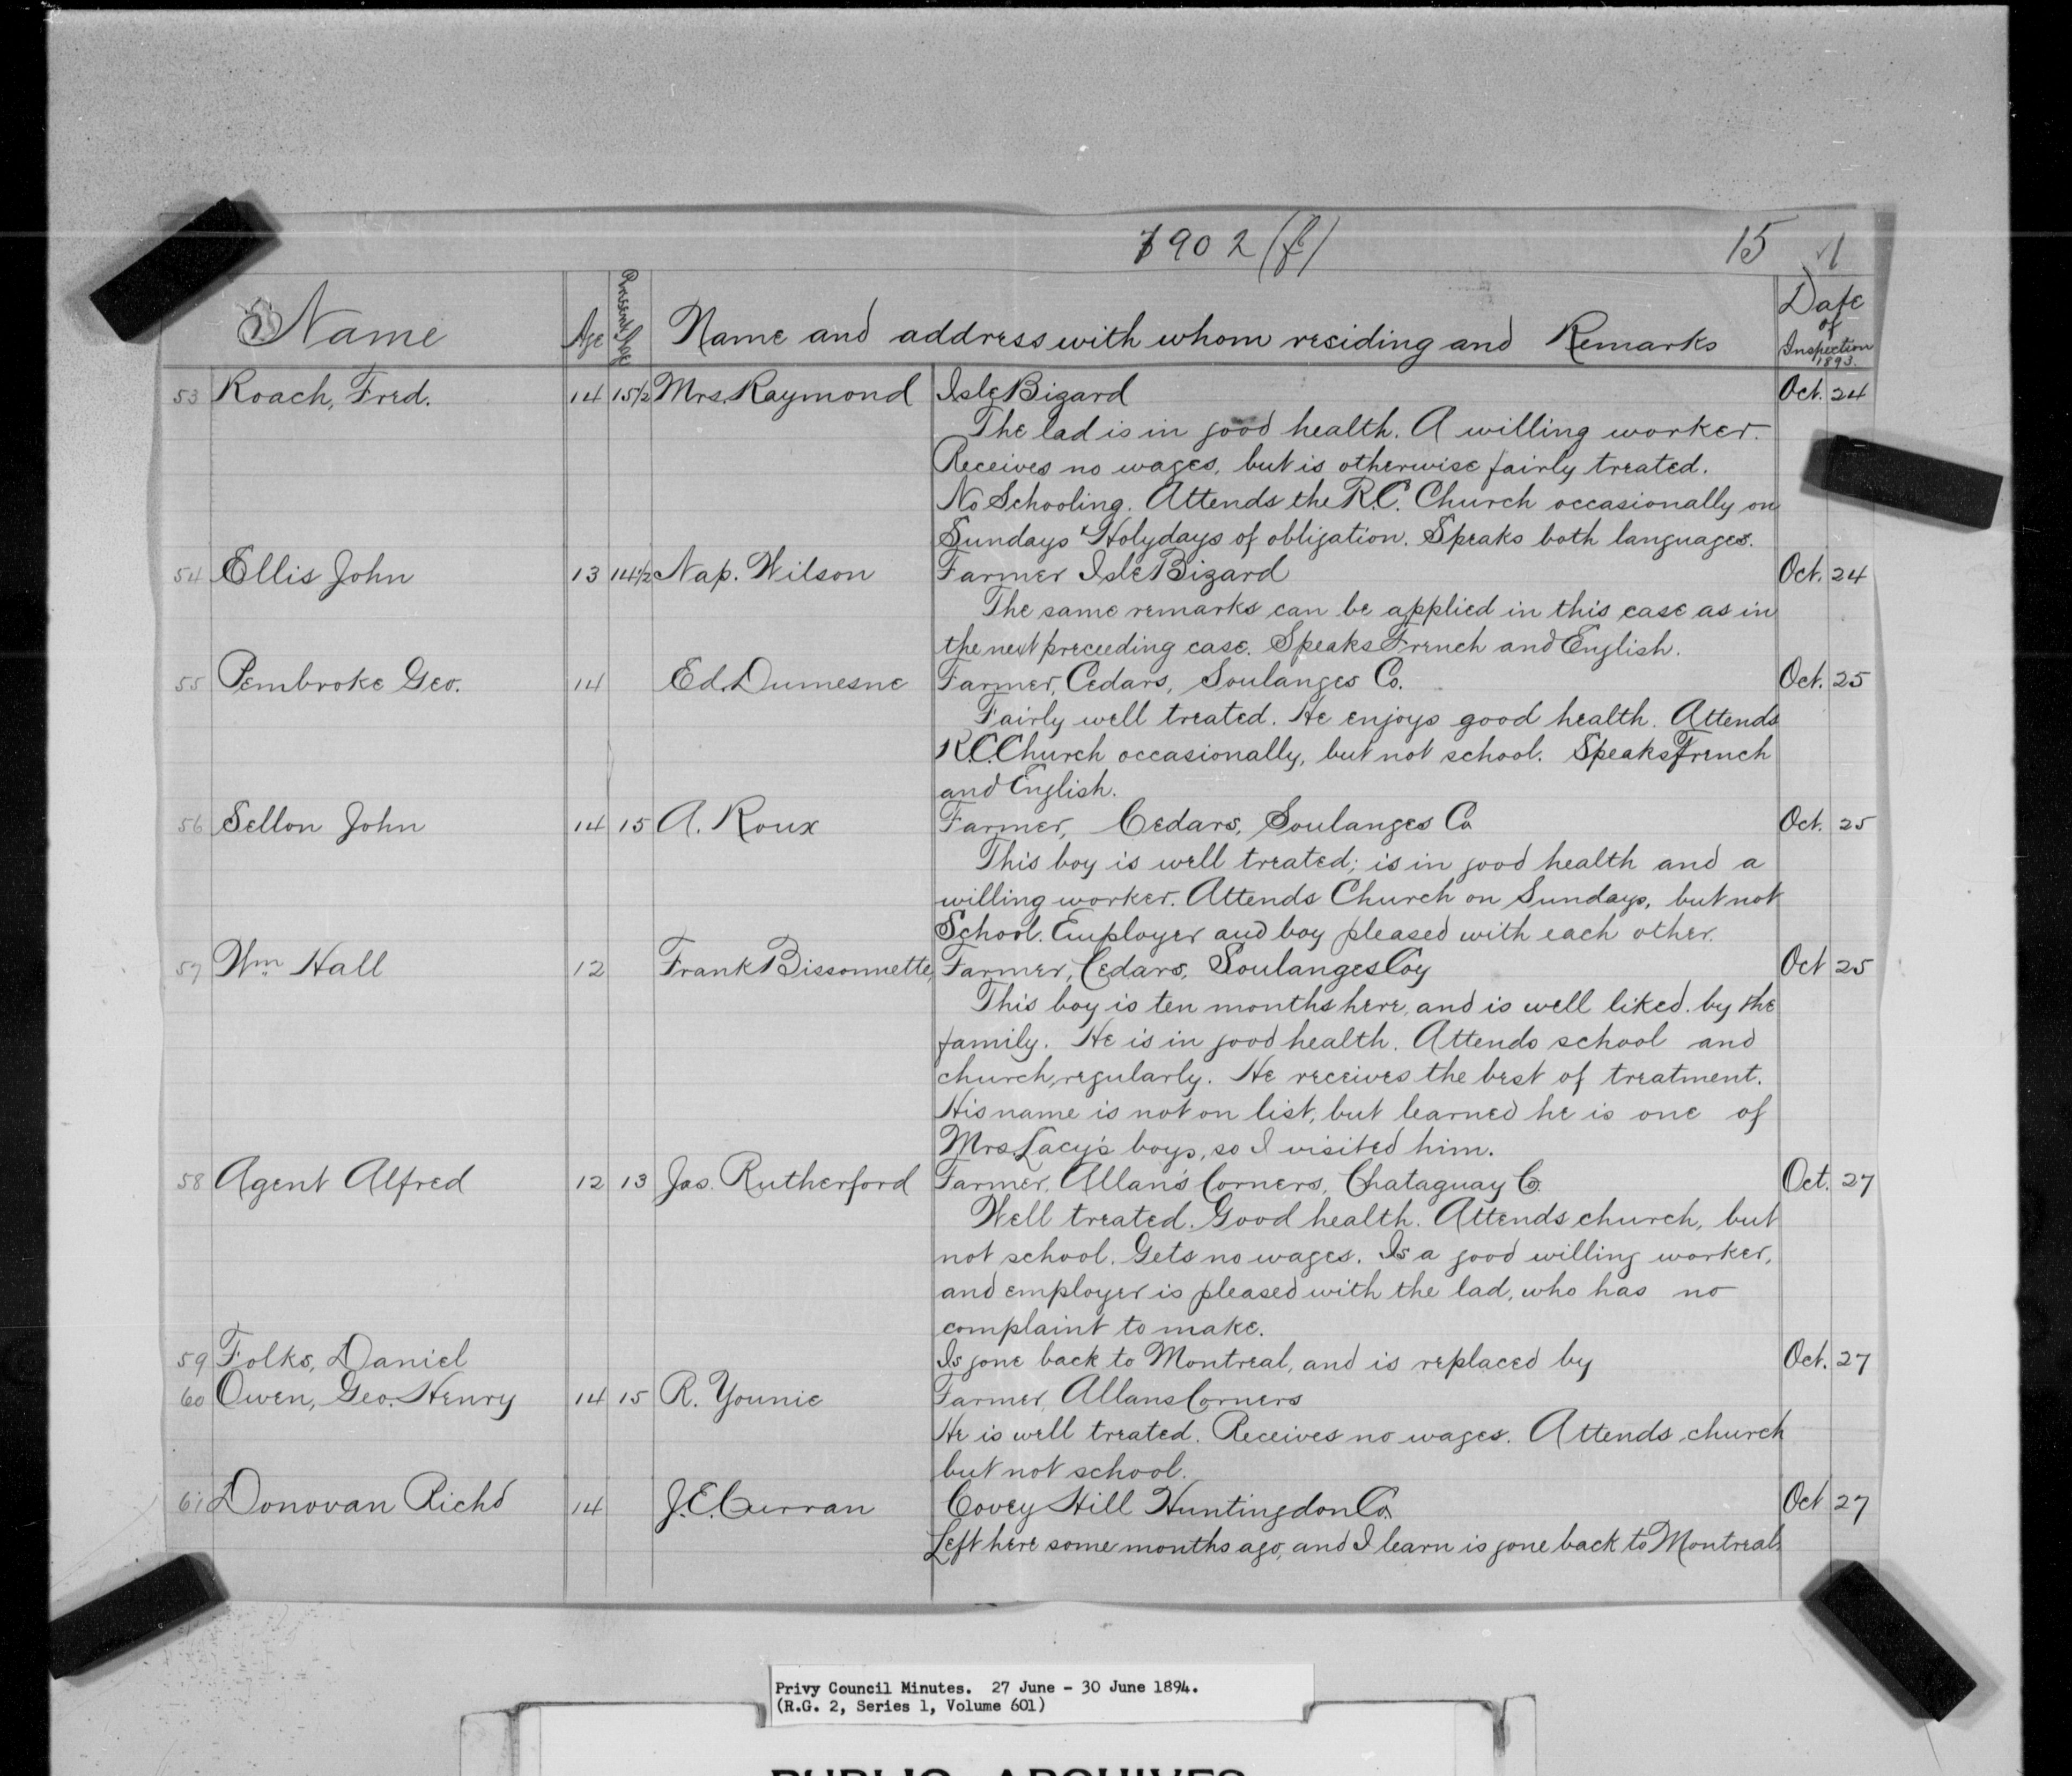 1902 (f) 15
Name Age Present Age Name and address with whom residing and Remarks Date of Inspection 1893.
53 Roach, Fred. 14 15½ Mrs. Raymond Isle Bizard Oct. 24
The lad is in good health. A willing worker.
Receives no wages, but is otherwise fairly treated.
No Schooling. Attends the R.C. Church occasionally on
Sundays & Holydays of obligation. Speaks both languages.
54 Ellis John 13 14½ Nap. Wilson Farmer Isle Bizard Oct. 24
The same remarks can be applied in this case as in
the next preceeding case. Speaks French and English.
55 Pembroke Geo. 14 Ed. Dumesne Farmer, Cedars, Soulanges Co. Oct. 25
Fairly well treated. He enjoys good health. Attends
R.C. Church occasionally, but not school. Speaks French
and English.
56 Sellon John 14 15 A. Roux Farmer, Cedars, Soulanges Co Oct. 25
This boy is well treated; is in good health and a
willing worker. Attends Church on Sundays, but not
School. Employer and boy pleased with each other.
57 Wm. Hall 12 Frank Bissonnette, Farmer, Cedars, Soulanges Coy Oct 25
This boy is ten months here, and is well liked by the
family. He is in good health. Attends school and
church, regularly. He receives the best of treatment.
His name is not on list, but learned he is one of
Mrs. Lacy's boys, so I visited him.
58 Agent Alfred 12 13 Jas. Rutherford Farmer, Allan's Corners, Chataguay Co. Oct. 27
Well treated. Good health. Attends church, but
not school. Gets no wages. Is a good willing worker,
and employer is pleased with the lad, who has no
complaint to make.
59 Folks, Daniel Is gone back to Montreal, and is replaced by Oct. 27
60 Owen, Geo. Henry 14 15 R. Younie Farmer, Allans Corners
He is well treated. Receives no wages. Attends church
but not school.
61 Donovan Richd 14 J.E. Curran Covey Hill Huntingdon Co. Oct 27
Left here some months ago, and I learn is gone back to Montreal.
Privy Council Minutes. 27 June - 30 June 1894.
(R.G. 2, Series 1, Volume 601)
PUBLIC ARCHIVES